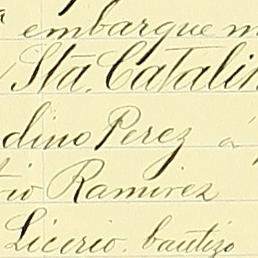 embarque m
Sta. Catalin
dino Perez á
rio Ramirez
Licerio. bautizo